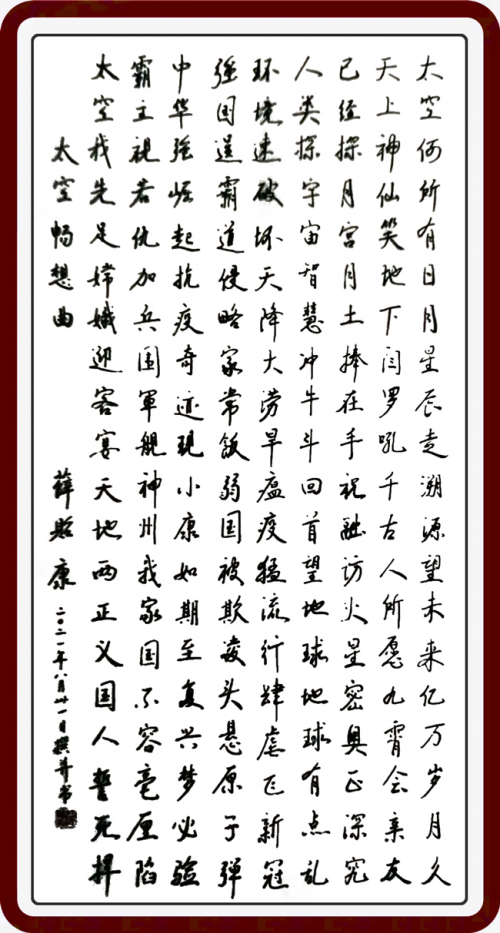 太空何所有日月星辰走溯源望未来亿万岁月久
天上神仙笑地下闫罗吼千古人所愿九霄会亲友
已经探月宫月土捧在手祝融访火星密奥正深究
人类探宇宙智慧冲牛斗回首望地球地球有点乱
环境速破坏天降大涝旱瘟疫猛流行肆虐正新冠
强国逞霸道侵略家常饭弱国被欺凌头悬原子弹
中华强崛起抗疫奇迹现小康如期至复兴梦必验
霸主视若仇加兵围軍舰神州我家国不容毫厘陷
太空我先足嫦娥迎客宴天地两正义国人誓死捍
太空畅想曲
薛康二〇二一年八月卅一日撰并书